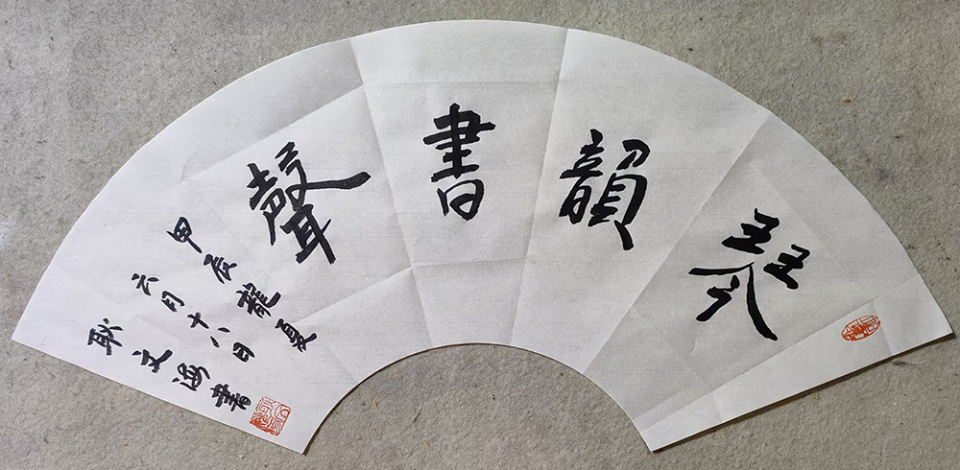 琴韻書聲
甲辰龍夏
六月十八日
耿文海書